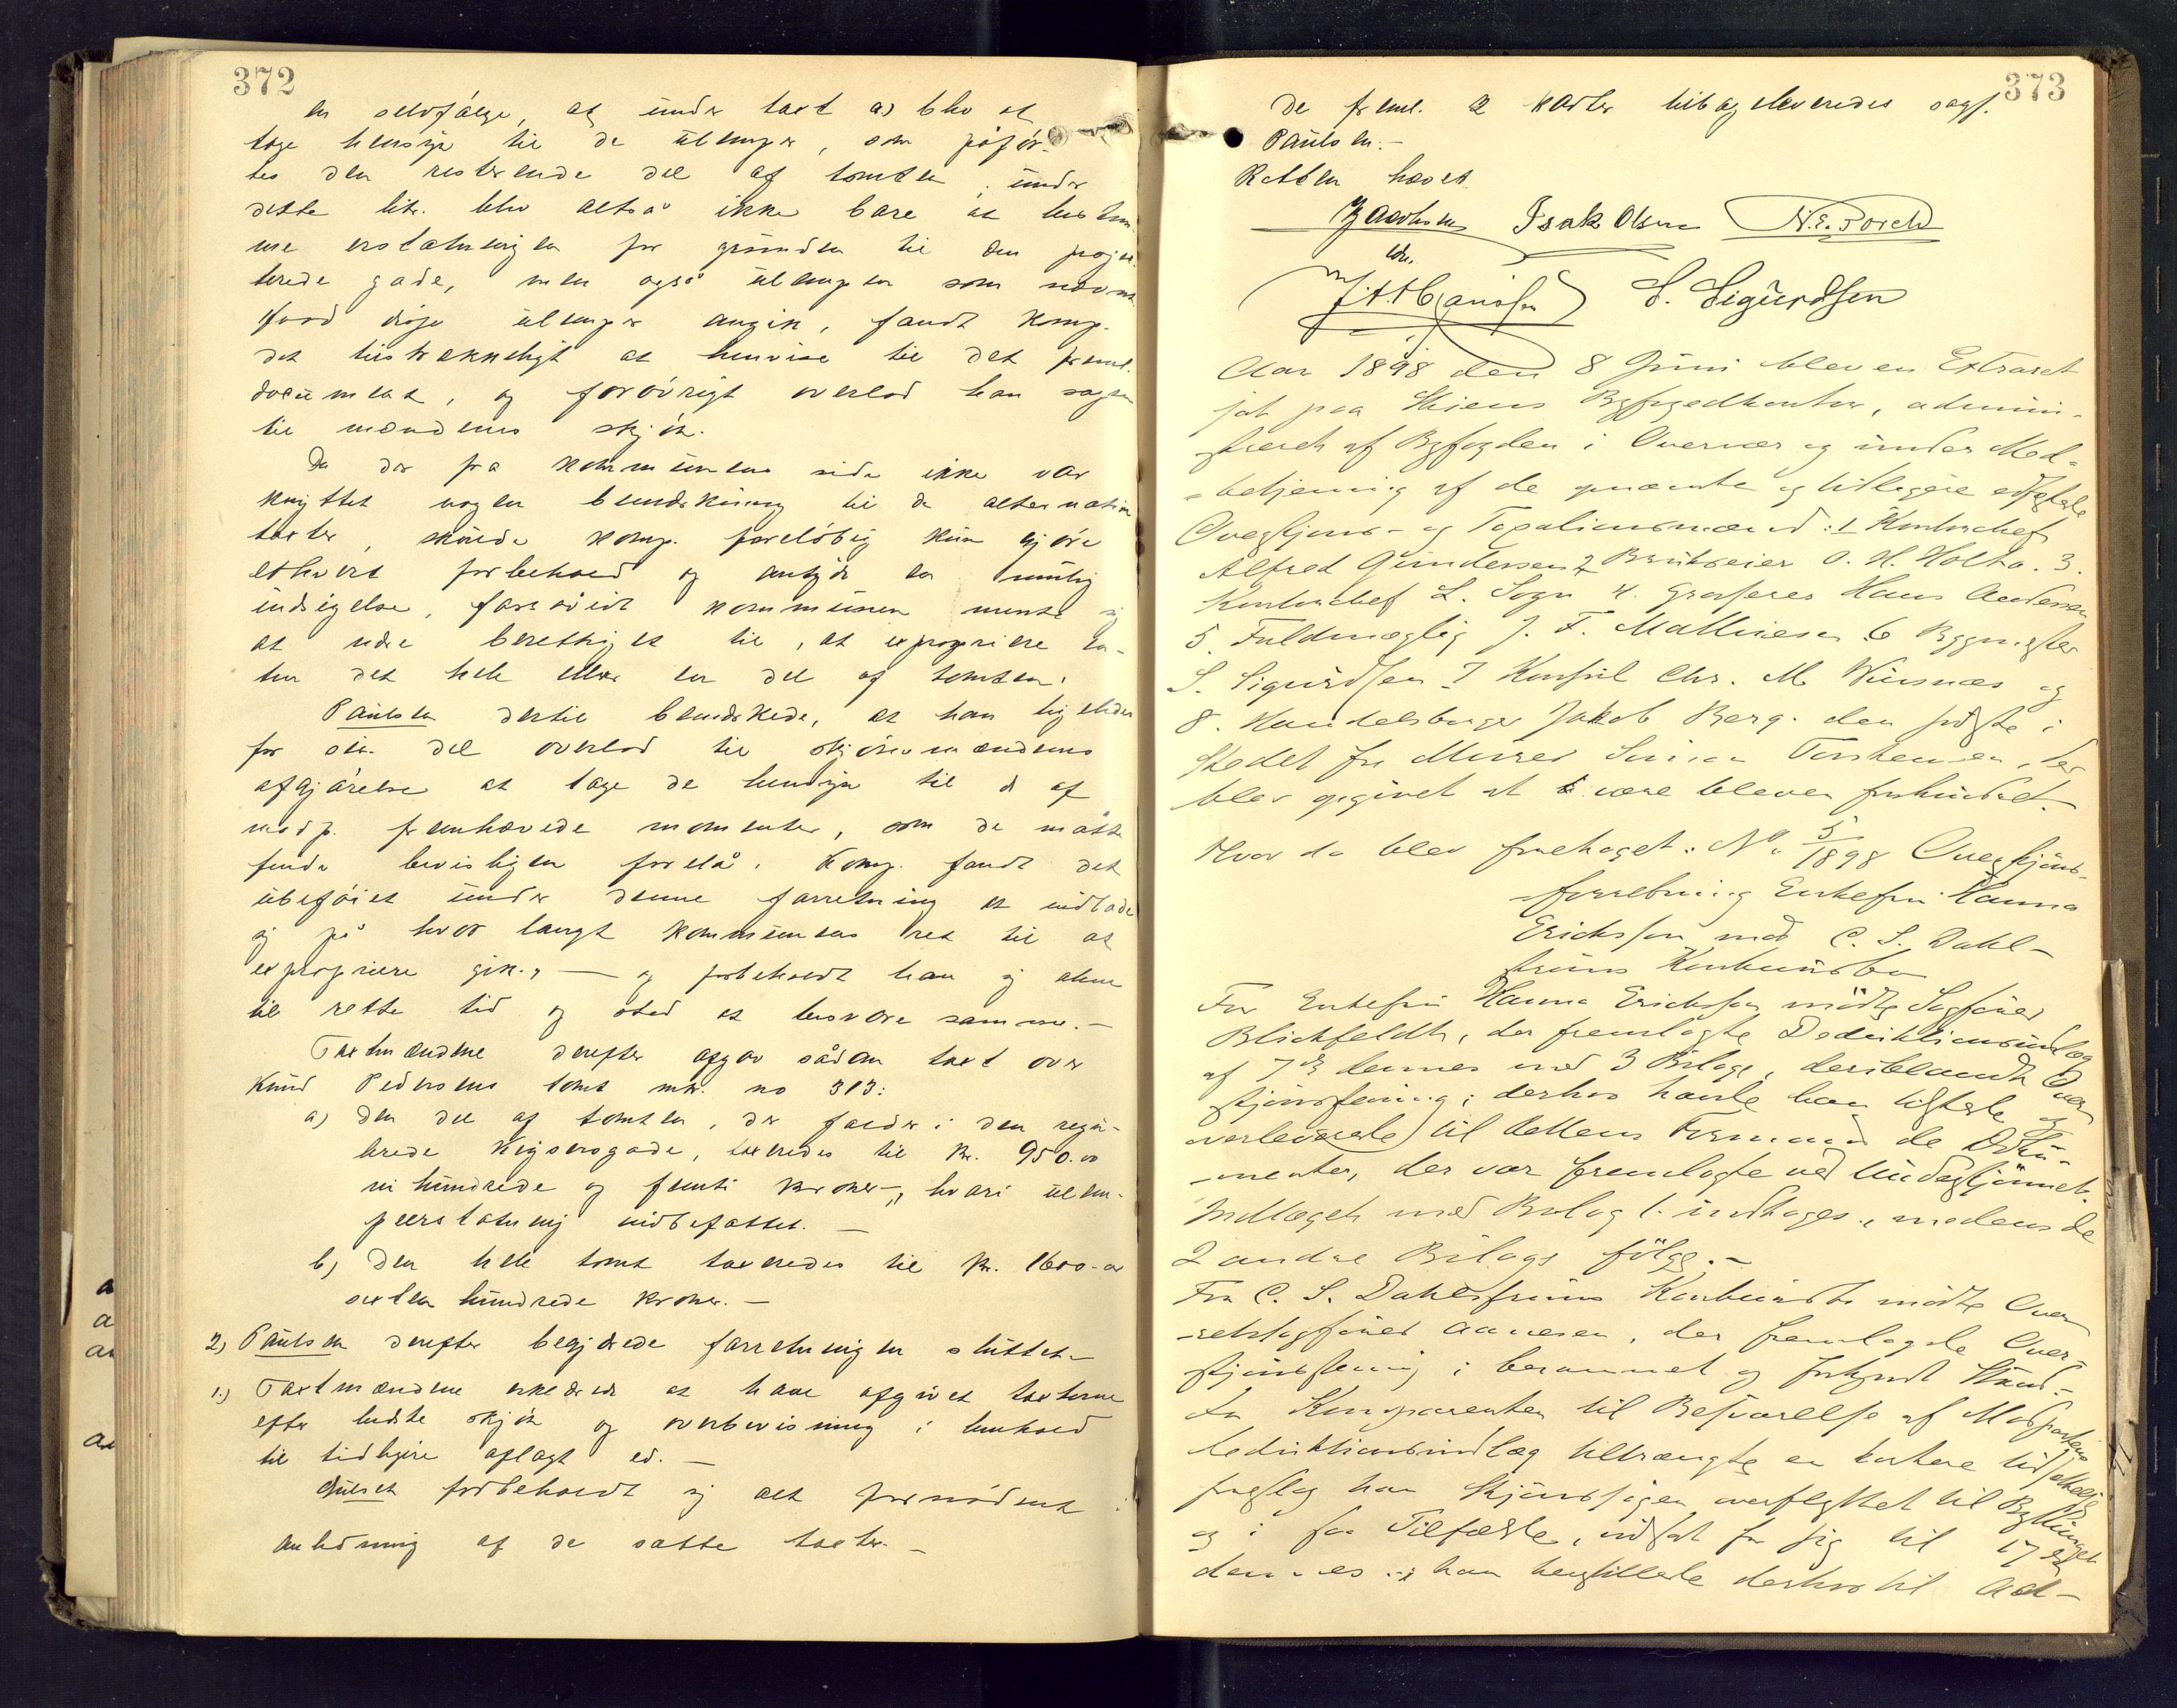 372
en selvfölge, at under taxt a) blev at
tage hensyn til de ulemper, som påför-
tes den resterende del af tomten; under
dette litr. blev altså ikke bare at bestem
me erstatningen for grunden til den projek
terede gade, men også ulempen som nævnt
Hvad disse ulemper angik, fandt komp.
det tilstrækkeligt at henvise til det freml.
document, og forövrigt overlod han sagen
til mændenes skjön.
Da der fra kommunens side ikke var
knyttet nogen bemærkning til de alternative
taxter, skulde komp. foreløbig kun gjöre
ethvert forbehold og antyde en mulig
indsigelse, forsåvidt kommunen mente sig
at være berettiget til, at expropriere en-
ten det hele eller en del af tomten.
Paulsen dertil bemærkede, at han ligeledes
for sin del overlod til skjönsmændenes
afgjörelse at tage de hensyn til de af
modp. fremhævede momenter, som de måtte
finde bevisligen forelå. Komp. fandt det
ubeföiet under denne forretning at indlade
sig på hvor langt kommunens ret til at
expropriere gik, — og forbeholdt han sig alene
til rette tid og sted at besvare samme. —
Taxtmændene derefter afgav sådan taxt over
Knud Pedersens tomt mtr. no 313:
a) Den del af tomten, der falder i den regu-
lerede Keysersgade, taxeredes til Kr. 950.00
ni hundrede og femti kroner —, hvori ulem-
peerstatning indbefattet. —
b) Den hele tomt taxeredes til Kr. 1600.00
sexten hundrede kroner. —
2) Paulsen derefter begjærede forretningen sluttet. —
1.) Taxtmændene erklærede at have afgivet taxterne
efter bedste skjön og overbevisning i henhold
til tidligere aflagt ed. —
forbeholdt sig alt fornödent i
anledning af de satte taxter. —
373
De freml. 2 karter tilbageleveredes sagf.
Paulsen. —
Retten hævet.
Isak Olsen
S. Sigurdsen
Aar 1898 den 8 Juni blev en Extraret
sat paa Skiens Byfogedkontor, admini-
streret af Byfogden i Overvær og under Med-
-betjening af de opnævnte og tidligere edfæstede
Overskjøns- og Taxationsmænd: 1 Kontorchef
Alfred Gundersen 2 Brukseier O. H. Holta. 3.
Kontorchef L. Sogn 4. Grosserer Hans Andersen
5. Fuldmægtig J. F. Mathiesen 6 Bygmester
S. Sigurdsen 7 Konsul Chr. M. Wiersnæs og
8. Handelsborger Jakob Berg. den sidste i
Stedet for Murer Simon Torstensen, der
blev opgivet at være bleven forhindret.
Hvor da blev foretaget: No. 5/1898 Overskjøns-
forretning Enkefru Hanna
Erichsen mod C. S. Dahl-
strums Konkursbo
For Enkefru Hanna Erichsen mødte Sagfører
Blichfeldt, der fremlagte Deduktionsindlæg
af 7de dennes med 3 Bilage, deriblandt Over
skjønsstevning; derhos havde han tilstede og
overleverede til Rettens Formand de Doku-
-menter, der var fremlagte ved Underskjønnet.
Indlæget med Bilag 1. indtages, medens de
2 andre Bilage følge. —
For C. S. Dahlstrums Konkursbo mødte Over
-retssagfører Aanesen, der fremlagde Over-
skjønsstevning i berammet og forkyndt Stand.
Da Komparenten til Besvarelse af Modpartens
Deduktionsindlæg tiltrængte en kortere Tid
foreslog han Skjønssagen overflyttet til Bythinget
og i saa Tilfælde, udsat for sig til 17de
dennes; han henstillede derhos til Ad-